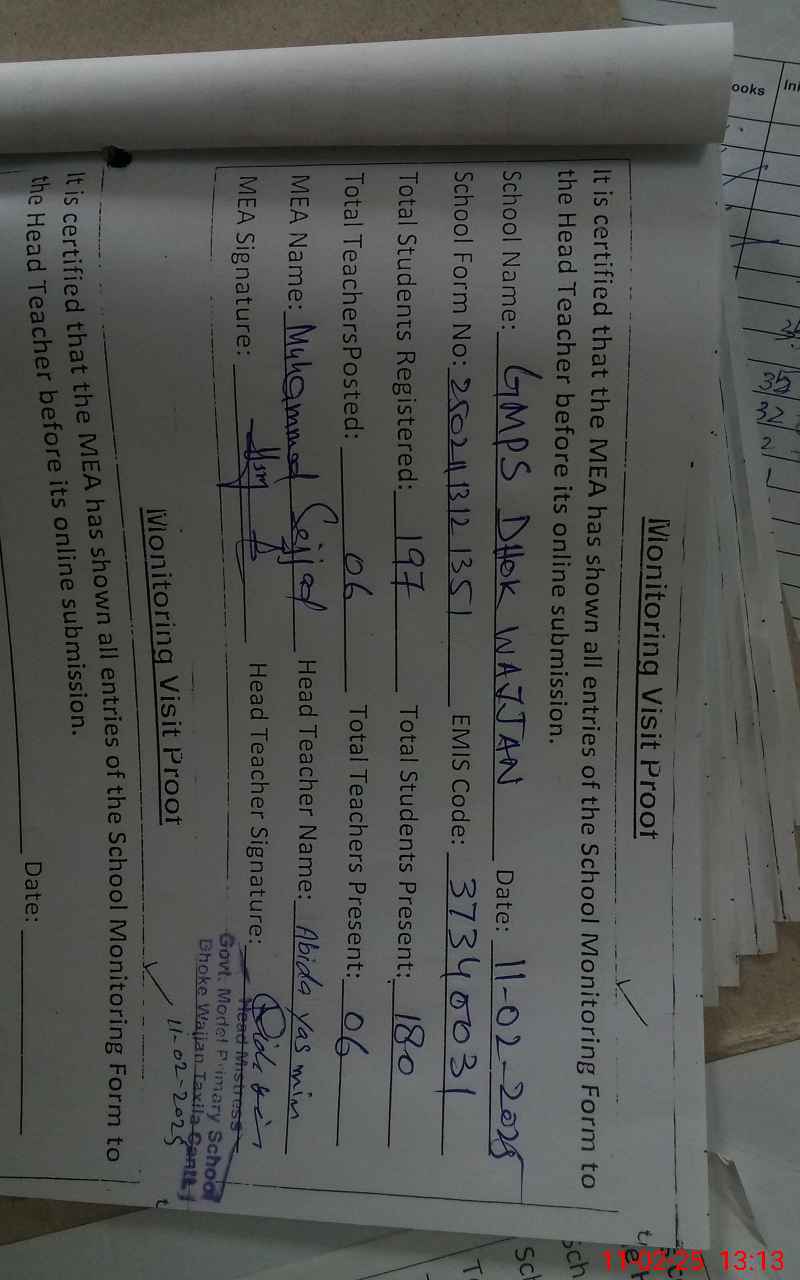 Monitoring Visit Proof
It is certified that the MEA has shown all entries of the School Monitoring Form to
the Head Teacher before its online submission.
School Name: GMPS DHOK WAJJAN Date: 11-02-2025
School Form No: 25021113121351 EMIS Code: 37340031
Total Students Registered: 197 Total Students Present: 180
Total TeachersPosted: 06 Total Teachers Present: 06
MEA Name: Muhammad Sajjad Head Teacher Name: Abida Yasmin
MEA Signature: Head Teacher Signature:
Head Mistress
Govt. Model Primary School
Dhoke Wajjan Taxila Cantt
11-02-2025
Monitoring Visit Proof
It is certified that the MEA has shown all entries of the School Monitoring Form to
the Head Teacher before its online submission.
Date:
ooks
11-02-25 13:13